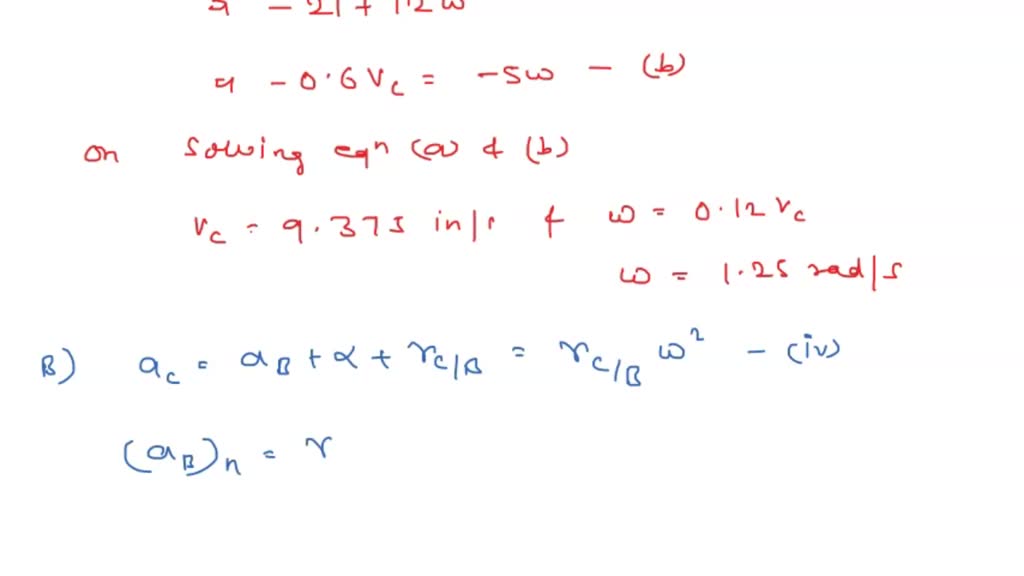 - 21 + 12ω
- 0.6 Vc = -5ω - (b)
on solving eqn (a) & (b)
Vc = 9.375 in/s & ω = 0.12 Vc
ω = 1.25 rad/s
B) ac = aB + α + rC/B = rC/B ω² - (iv)
(aB)n = r